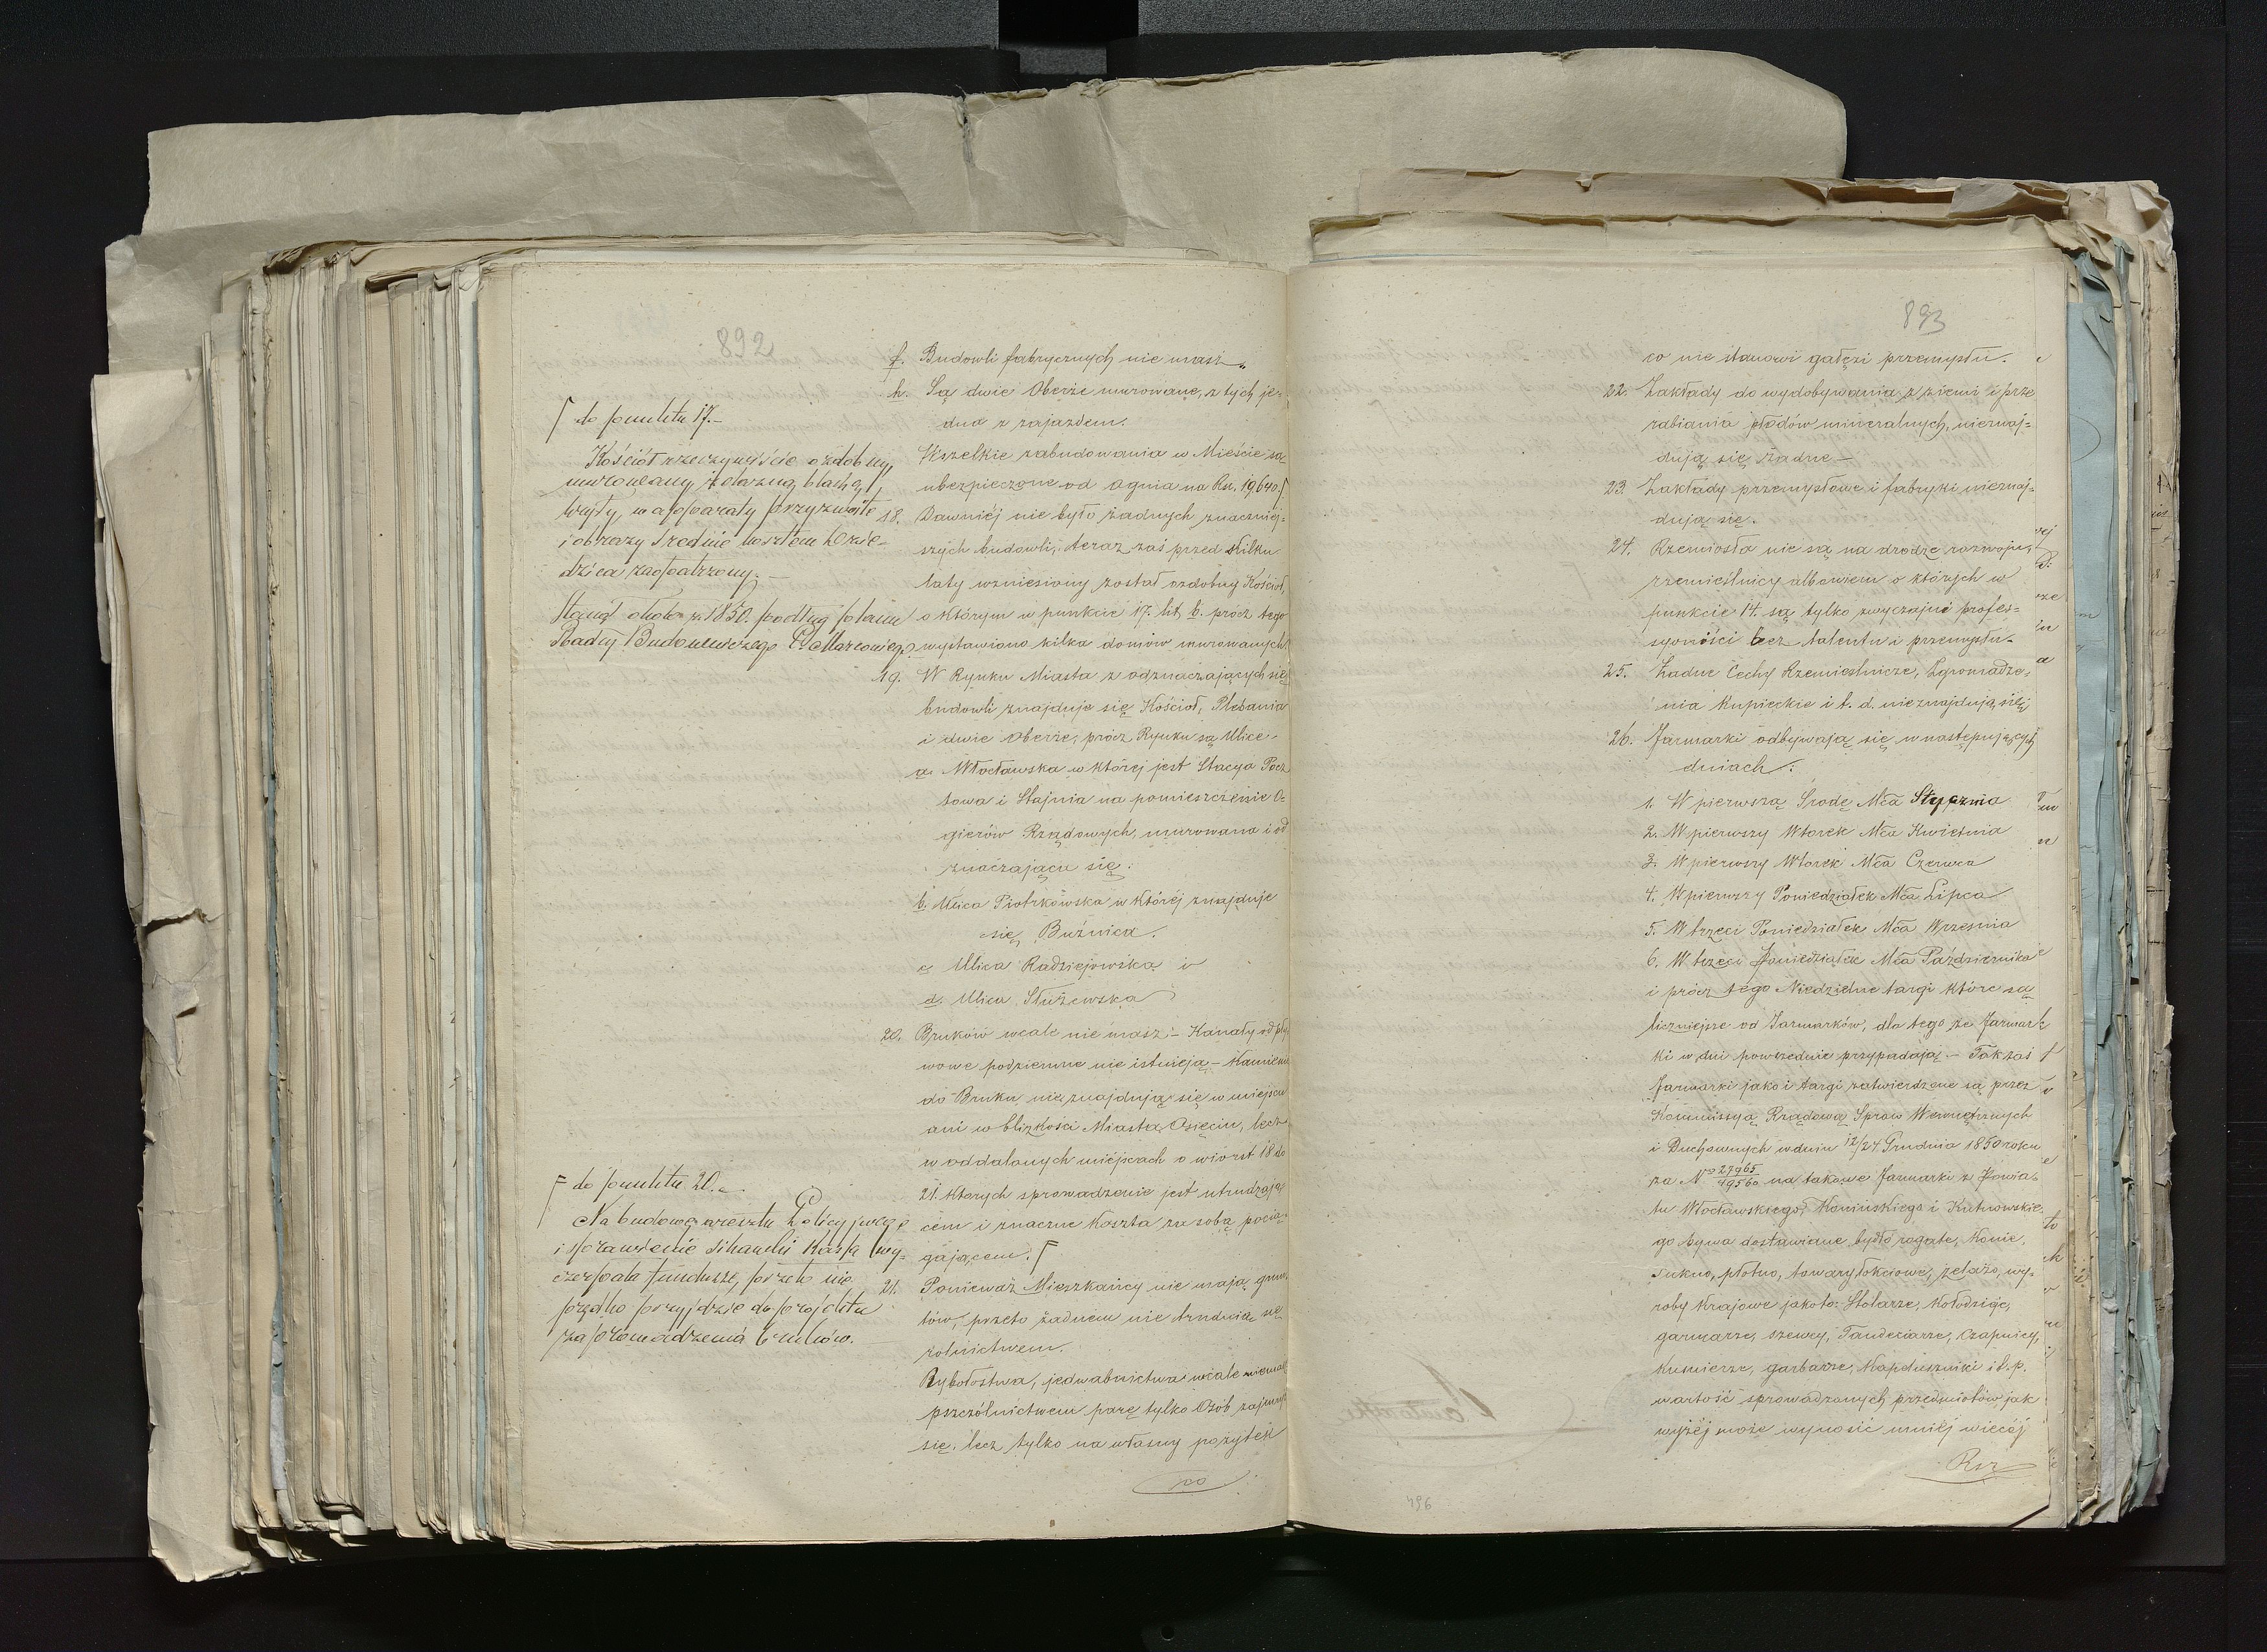 892
f. Budowli fabrycznych nie masz
h. Są dwie Oberże murowane, z tych je-
dna z zajazdem.
Wszelkie zabudowania w Mieście są
ubezpieczone od ognia na Rsr. 19640.
18. Dawniéj nie było żadnych znaczniej-
szych budowli, teraz zaś przed kilku
laty wzniesiony został ozdobny Kościół,
o którym w punkcie 17. lit. b. prócz tego
wystawiono kilka domów murowanych
19. W Rynku Miasta z odznaczających się
budowli znajduje się Kościoł, Plebania
i dwie Oberże, prócz Rynku są Ulice.
a. Włocławska w której jest Stacya Pocz
towa i Stajnia na pomieszczenie O-
gierów Rządowych, murowana i od
znaczająca się.
b. Ulica Piotrkowska w któréj znajduje
się Bużnica.
c. Ulica Radziejowska i
d. Ulica Służewska
20. Bruków wcale nie masz – Kanały odpły
wowe podziemne nie istnieją – Kamienie
do Bruku nie znajdują się w miejscu
ani w blizkości Miasta Osięcin, lecz
w oddalonych miejscach o wiorst 18 do
21. których sprowadzenie jest utrudzają
cem i znaczne koszta za sobą pocią-
gającem.
21. Ponieważ Mieszkańcy nie mają grun
tów, przeto żadnem nie trudnią się
rolnictwem.
Rybołostwa, jedwabnictwa wcale niema
pszczólnictwem parę tylko Osób zajmuje
się, lecz tylko na własny pożytek
co
do punktu 17.
Kościół rzeczywiście ozdobny,
murowany, żelazną blachą
kryty, w apparaty przyzwoite
i obrazy średnie kosztem Dzie-
dzica zaopatrzony.
Stanął około r. 1850. podług planu
Radcy Budowniczego Marconiego
do punktu 20.
Na budowę aresztu Policyjnego
i sprawienie sikawki Kassa wy-
czerpała fundusze, przeto nie
prędko przyjdzie do projektu
zaprowadzenia bruków.
893
co nie stanowi gałęzi przemysłu.
22. Zakłady do wydobywania z ziemi i prze
rabiania płodów mineralnych, nieznaj-
dują się żadne –
23. Zakłady przemysłowe i fabryki nieznaj-
dują się.
24. Rzemiosła nie są na drodze rozwoju,
rzemieślnicy albowiem o których w
punkcie 14. są tylko zwyczajni profes-
syoniści bez talentu i przemysłu.
25. Żadne Cechy Rzemieślnicze, Zgromadze-
nia kupieckie i t. d. nie znajdują się;
26. Jarmarki odbywają się w następujących
dniach:
1. W pierwszą Srodę Mca Stycznia
2. W pierwszy Wtorek Mca Kwietnia
3. W pierwszy Wtorek Mca Czerwca
4. W pierwszy Poniedziałek Mca Lipca
5. W trzeci Poniedziałek Mca Września
6. W trzeci Poniedziałek Mca Październiku
i prócz tego Niedzielne targi które są
liczniejsze od Jarmarków, dla tego że Jarmar
ki w dni powszednie przypadają – Tak zaś
Jarmarki jako i targi zatwierdzone są przez
Kommissyą Rządową Spraw Wewnętrznych
i Duchownych w dniu 12/24 Grudnia 1850 roku
za No 27965/49560 na takowe Jarmarki z Powia-
tu Włocławskiego, Konińskiego i Kutnowskie
go bywa dostawiane bydło rogate, Konie,
sukno, płótno, towary łokciowe, żelazo, wy-
roby krajowe jakoto: Stolarze, Kołodzieje,
garncarze, szewcy, Tandeciarze, Czapnicy,
Kuśnierze, garbarze, Kapelusznicy i t. p.
wartość sprowadzonych przedmiotów jak
wyżéj może wynosić mniéj wiecéj
Rsr
496